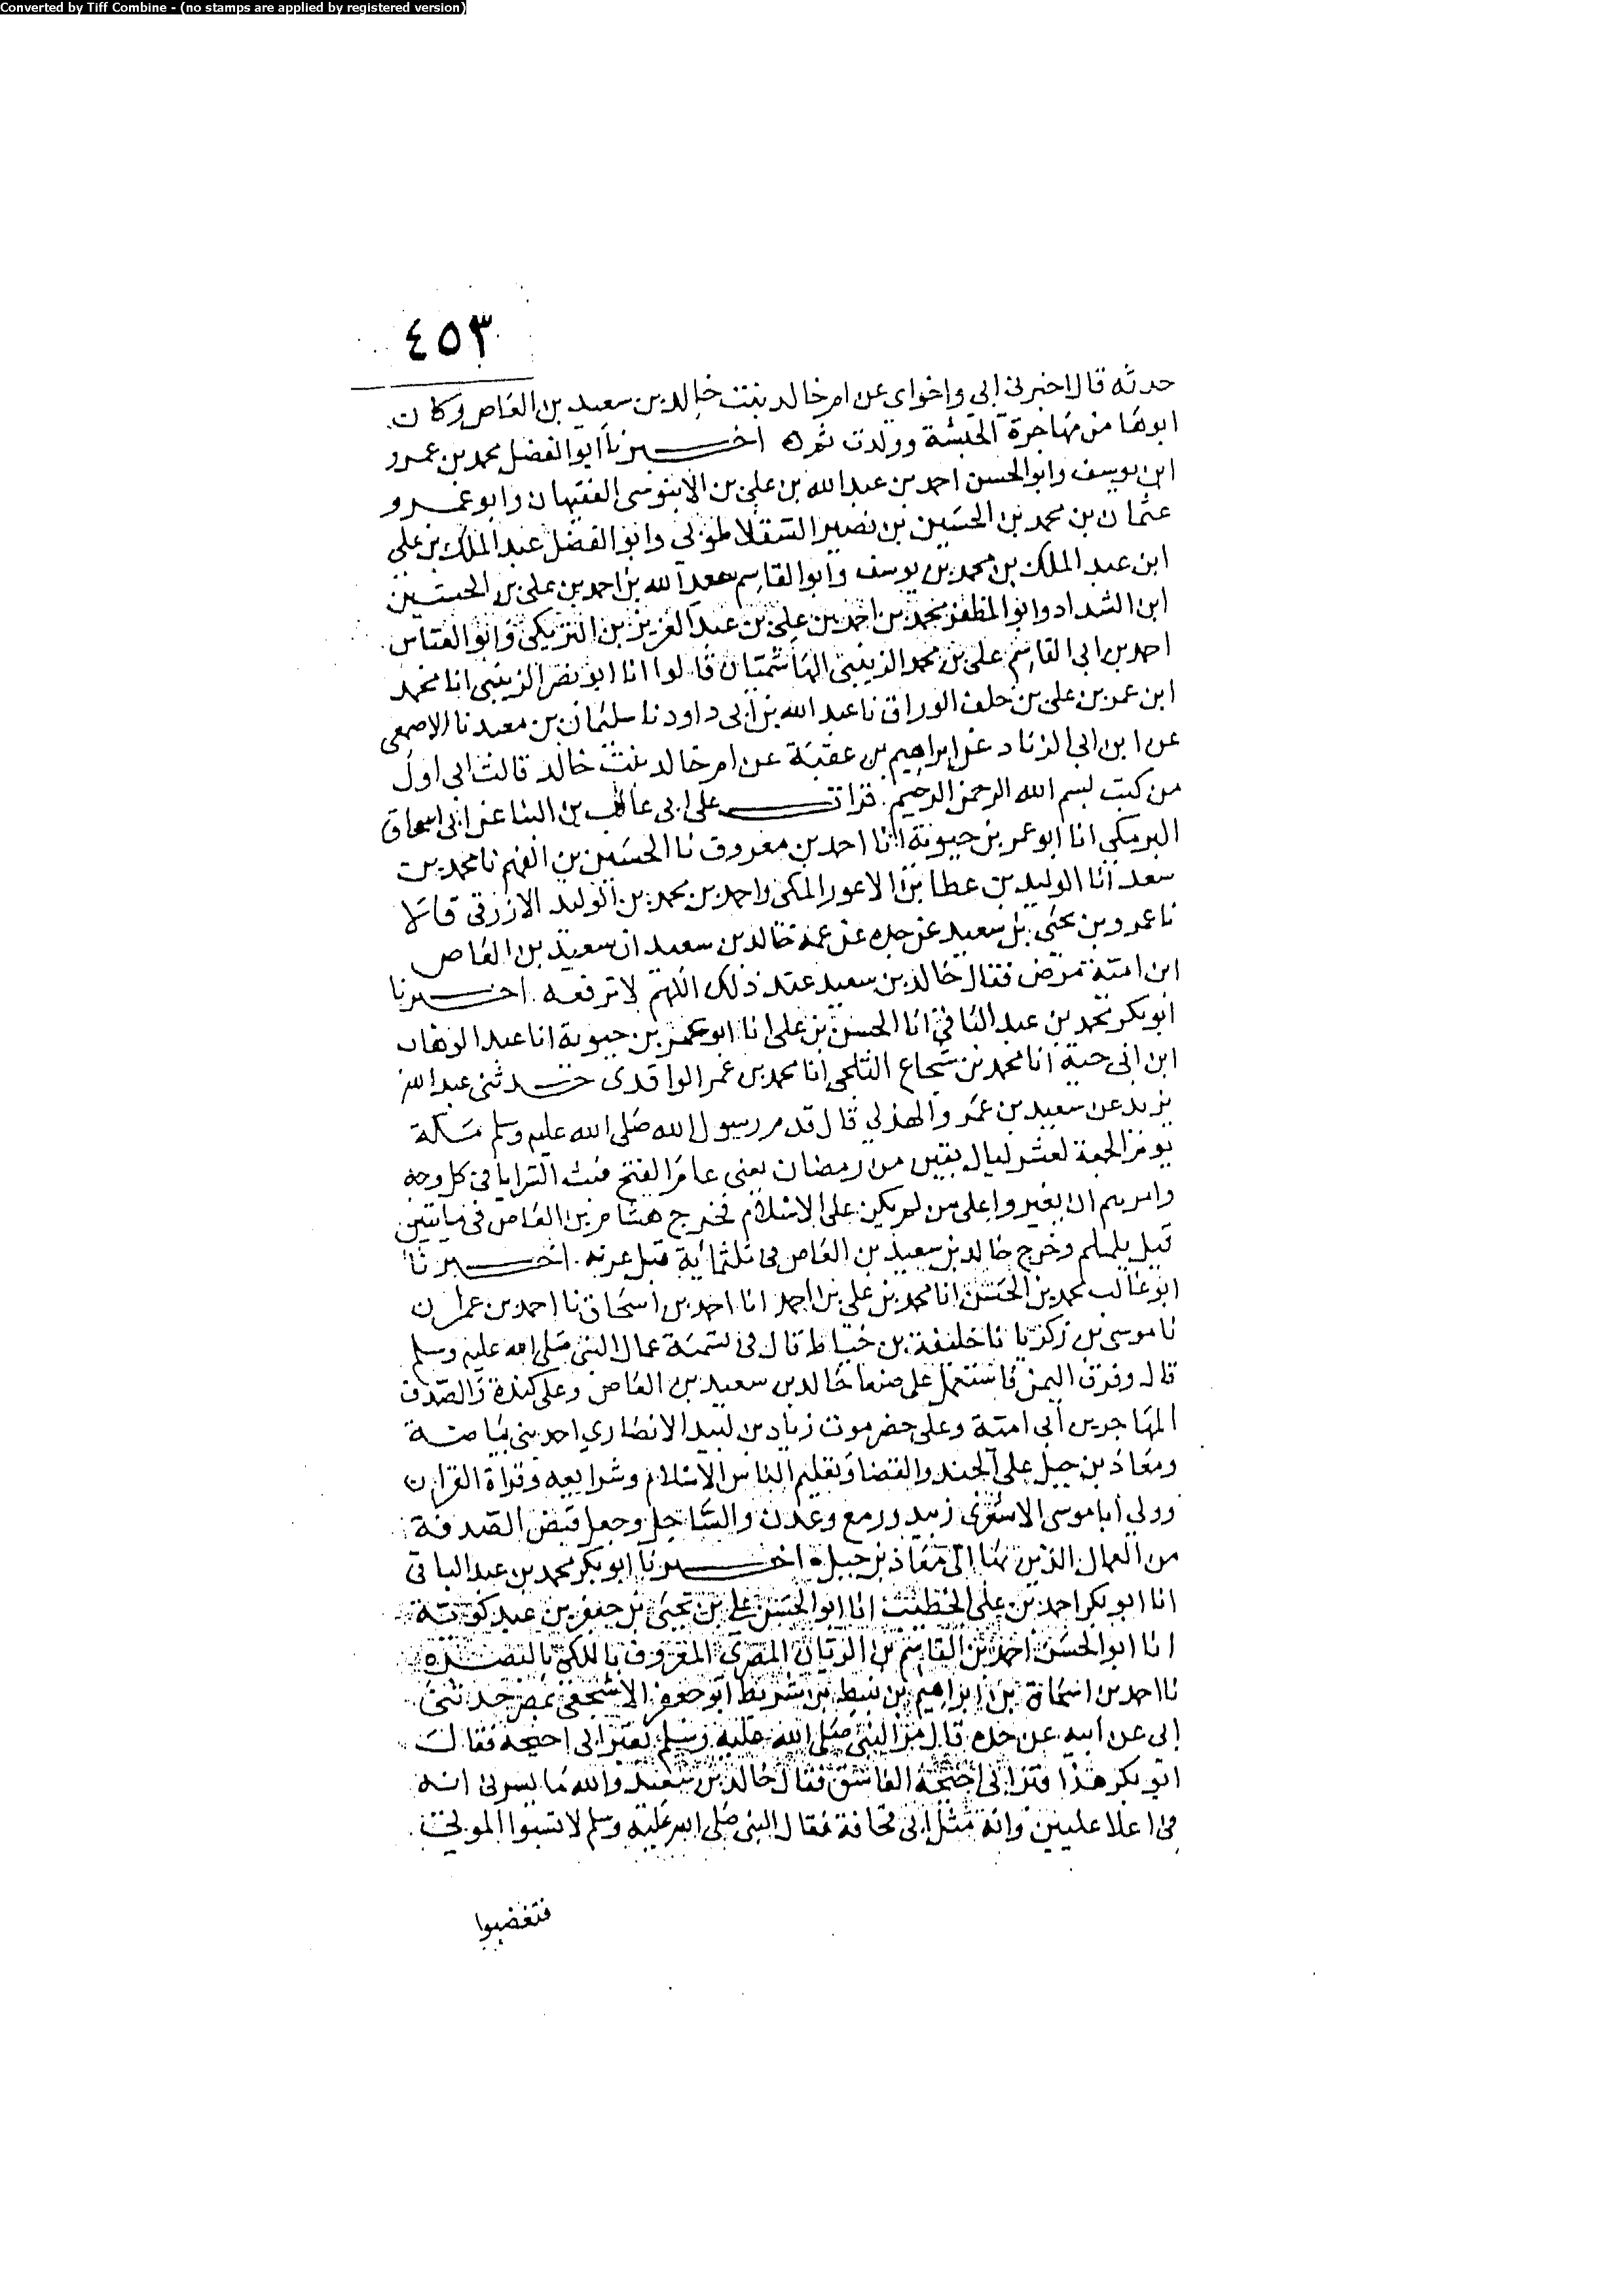 Converted by Tiff Combine - (no stamps are applied by registered version)
٤٥٣
حدثه قال اخبرني ابي واخواي عن ام خالد بنت خالد بن سعيد بن العاص وكان
ابوها من مهاجرة الحبشة وولدت ثم اخبرنا ابو الفضل محمد بن عمرو
ابن يوسف وابو الحسن احمد بن عبد الله بن علي بن الابنوسي الفقيهان وابو عمرو
عثمان بن محمد بن الحسين بن نصير السقلاطوني وابو الفضل عبد الملك بن علي
ابن عبد الملك بن محمد بن يوسف وابو القاسم سعد الله بن احمد بن علي بن الحسين
ابن الشداد وابو المظفر محمد بن احمد بن علي بن عبد العزيز بن التريكي وابو العباس
احمد بن ابي القاسم علي بن محمد الزينبي الهاشميان قالوا انا ابو نصر الزينبي انا محمد
ابن عمر بن علي بن خلف الوراق نا عبد الله بن ابي داود نا سليمان بن معبد نا الاصمعي
عن ابن ابي الزناد عن ابراهيم بن عقبة عن ام خالد بنت خالد قالت ابي اول
من كتب بسم الله الرحمن الرحيم. قرات على ابي غالب بن البنا عن ابي اسحاق
البرمكي انا ابو عمر بن حيوية انا احمد بن معروف نا الحسين بن الفهم نا محمد بن
سعد انا الوليد بن عطا بن الاعور المكي واحمد بن محمد بن الوليد الازرقي قالا
نا عمرو بن يحيى بن سعيد عن جده عن عمه خالد بن سعيد ان سعيد بن العاص
ابن امية مرض فقال خالد بن سعيد عند ذلك اللهم لا ترفعه. اخبرنا
ابو بكر محمد بن عبد الباقي انا الحسن بن علي انا ابو عمر بن حيوية انا عبد الوهاب
ابن ابي حية انا محمد بن شجاع الثلجي انا محمد بن عمر الواقدي حدثني عبد الله بن
يزيد عن سعيد بن عمرو الهذلي قال قدم رسول الله صلى الله عليه وسلم مكة
يوم الجمعة لعشر ليال بقين من رمضان يعني عام الفتح فبث السرايا في كل وجه
وامرهم ان يغيروا على من لم يكن على الاسلام فخرج هشام بن العاص في مايتين
قبل يلملم وخرج خالد بن سعيد بن العاص في ثلثمائة قبل عرنه. اخبرنا
ابو غالب محمد بن الحسن انا محمد بن علي بن احمد انا احمد بن اسحاق نا احمد بن عمران
نا موسى بن زكريا نا خليفة بن خياط قال في تسمية عمال النبي صلى الله عليه وسلم
قال وفرق اليمن فاستعمل على صنعا خالد بن سعيد بن العاص وعلى كندة والصدف
المهاجر بن ابي امية وعلى حضرموت زياد بن لبيد الانصاري احد بني بياضة
ومعاذ بن جبل على الجند والقضا وتعليم الناس الاسلام وشرايعه وقراة القران
وولي ابا موسى الاشعري زبيد ورمع وعدن والساحل وجعل قبض الصدقة
من العمال الذين بها الى معاذ بن جبل اخبرنا ابو بكر محمد بن عبد الباقي
انا ابو بكر احمد بن علي الخطيب انا ابو الحسن علي بن يحيى بن جعفر بن عبد كوية
انا ابو الحسن احمد بن القاسم بن الريان المصري المعروف باللكي بالبصره
نا احمد بن اسحاق بن ابراهيم بن نبيط بن شريط ابو جعفر الاشجعي بمصر حدثني
ابي عن ابيه عن جده قال مر النبي صلى الله عليه وسلم بقبر ابي احيحة فقال
ابو بكر هذا قبر ابي احيحة الفاسق فقال خالد بن سعيد والله ما يسرني انه
في اعلا عليين وانه مثل ابي قحافة فقال النبي صلى الله عليه وسلم لا تسبوا الموتى
فتغضبوا